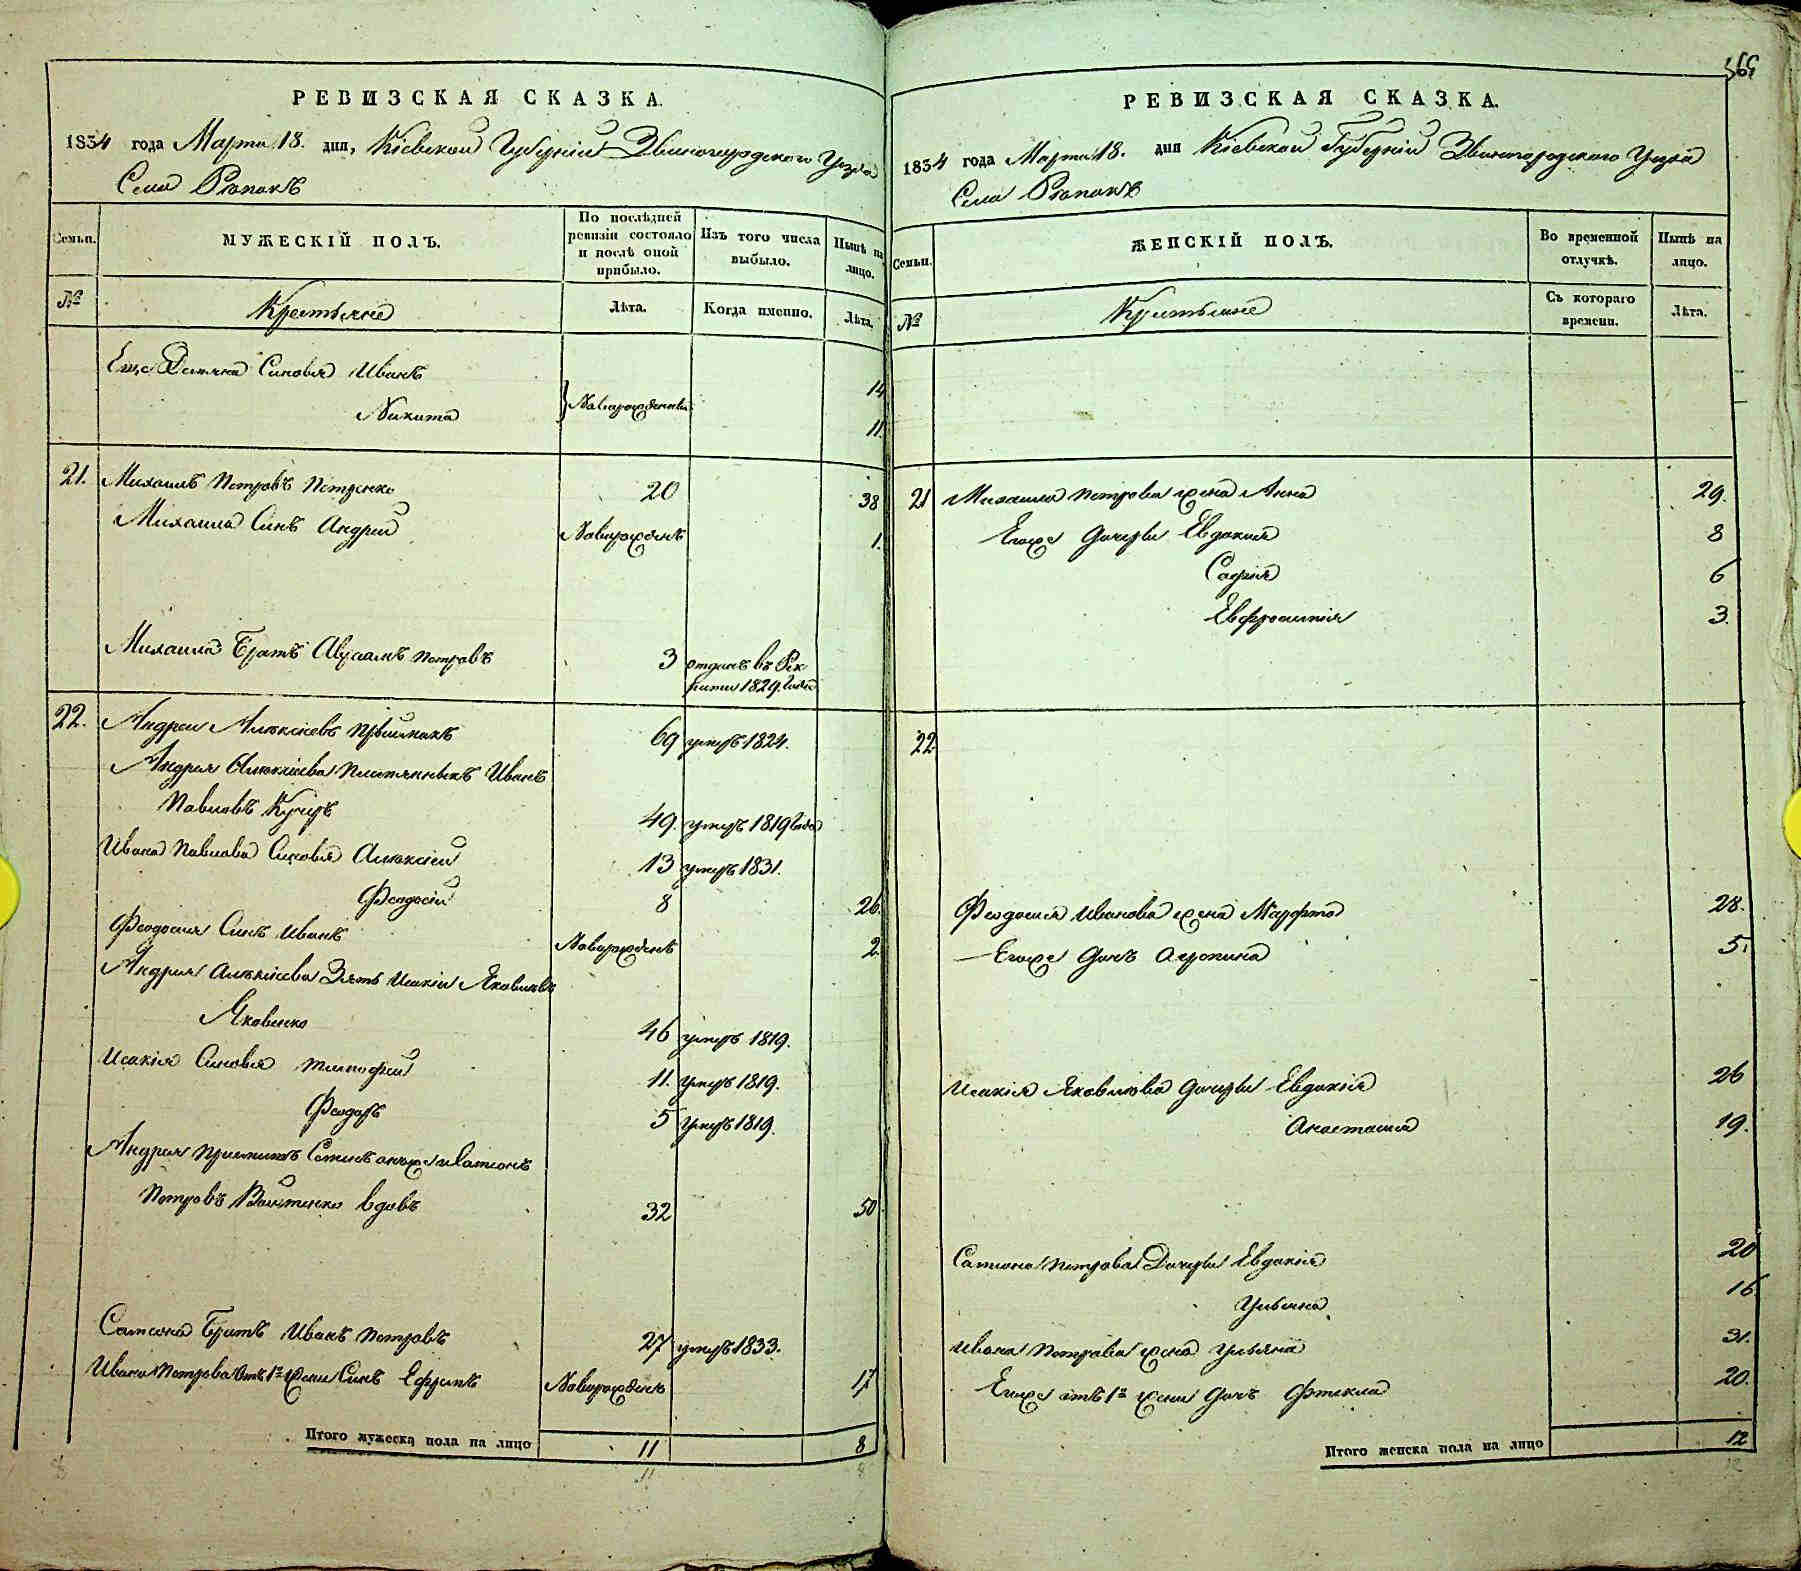 365
РЕВИЗСКАЯ СКАЗКА.
1834 года Марта 18. дня, Кіевской Губерніи Звиногородского Уезда
Села Рѣпокъ
Семьи.
МУЖЕСКІЙ ПОЛЪ.
По послѣдней ревизіи состояло и послѣ оной прибыло.
Изъ того числа выбыло.
Нынѣ на лицо.
№
Крестьяне
Лѣта.
Когда именно.
Лѣта.
Его Демяна Синовья Иванъ 14
Никита Новорожденны 11.
21. Михаилъ Петровъ Петренко 20 38
Михаила Синъ Андрей Новорожденъ 1.
Михаила Братъ Авраамъ Петровъ 3 отданъ въ Рек-
руты 1829. Года
22. Андреи Алексіевъ Пріймакъ 69 умеръ 1824.
Андрея Алексіева Племянникъ Иванъ
Павловъ Кучеръ 49. умеръ 1819 Года
Ивана Павлова Синовья Алексіей 13 умеръ 1831.
Феодосій 8 26.
Феодосия Синъ Иванъ Новорожденъ 2.
Андрея Алексіева Зять Исакіи Яковлевъ
Яковенко 46 умеръ 1819.
Исакія Синовья Тимофей 11. умеръ 1819.
Феодоръ 5 умеръ 1819.
Андрея Приемышъ Самсонъ
Петровъ Войтенко вдовъ 32 50
Самсона Братъ Иванъ Петровъ 27 умеръ 1833.
Ивана Петрова Отъ 1й жени Синъ Ефремъ Новорожденъ 17
Итого мужеска пола на лицо 11 8
8 11 8
РЕВИЗСКАЯ СКАЗКА.
1834 года Марта 18. дня Кіевской Губерніи Звиногородского Уезда
Села Рѣпокъ
Семьи.
ЖЕНСКІЙ ПОЛЪ.
Во временной отлучкѣ.
Нынѣ на лицо.
№
Крестьяне
Съ котораго времени.
Лѣта.
21 Михаила Петрова жена Анна 29.
Егоже Дочери Евдокия 8
Софія 6
Евфросинія 3.
22
Феодосия Иванова жена Марфта 28.
Егоже Дочъ Агрипина 5.
Исакія Яковлева Дочери Евдокія 26
Анастасия 19.
Самсона Петрова Дочери Евдокія 20
Ульяна 16
Ивана Петрова жена Ульяна 31.
Егоже отъ 1й жени Дочъ Фтекла 20.
Итого женска пола на лицо 12
12